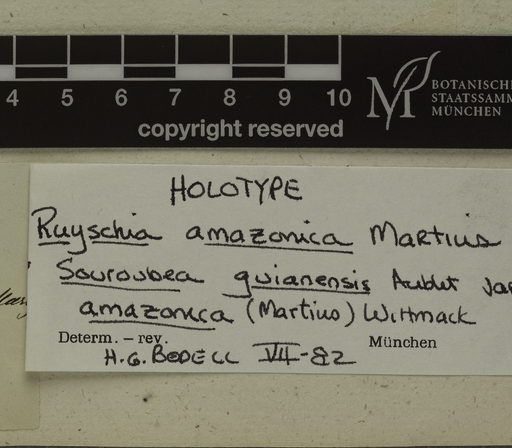 4 5 6 7 8 9 10
copyright reserved
BOTANISCHE
STAATSSAMM
MÜNCHEN
HOLOTYPE
Ruyschia amazonica Martius
Souroubea guianensis Aublet var
amazonica (Martius) Wittmack
Determ. – rev. München
H.G. BEDELL VII-82